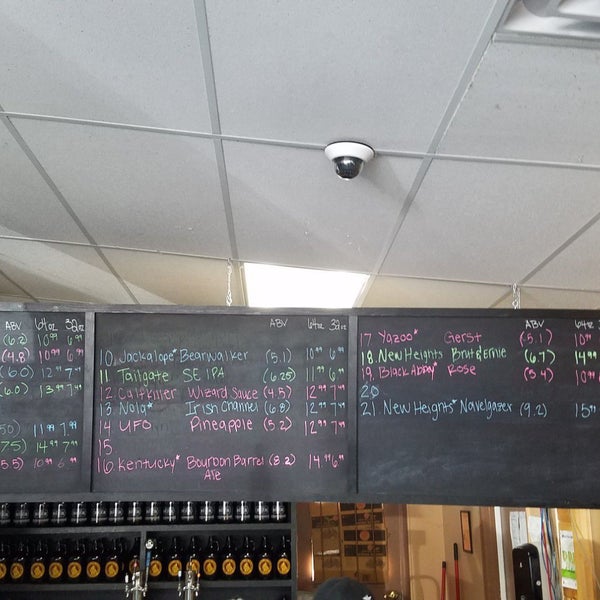 ABV 64oz 32oz
(6.2) 10⁹⁹ 6⁹⁹
(4.8) 10⁹⁹ 6⁹⁹
(6.0) 12⁹⁹ 7⁹⁹
(6.0) 13⁹⁹ 7⁹⁹
50) 11⁹⁹ 7⁹⁹
75) 14⁹⁹ 7⁹⁹
5.5) 10⁹⁹ 6⁹⁹
ABV 64oz 32oz
10. Jackalope* Bearwalker (5.1) 10⁹⁹ 6⁹⁹
11 Tailgate SE IPA (6.25) 11⁹⁹ 6⁹⁹
12 Calfkiller Wizard Sauce (4.5) 12⁹⁹ 7⁹⁹
13. Nola* Irish Channel (6.8) 12⁹⁹ 7⁹⁹
14 UFO Pineapple (5.2) 12⁹⁹ 7⁹⁹
15
16. Kentucky* Bourbon Barrel (8.2) 14.⁹⁹ 6⁹⁹
Ale
ABV 64oz
17 Yazoo* Gerst (5.1) 10⁹⁹
18. New Heights Brut & Ernie (6.7) 14⁹⁹
19. Black Abbey* Rose (5.4) 10⁹⁹
20
21. New Heights* Navelgazer (9.2) 15⁹⁹